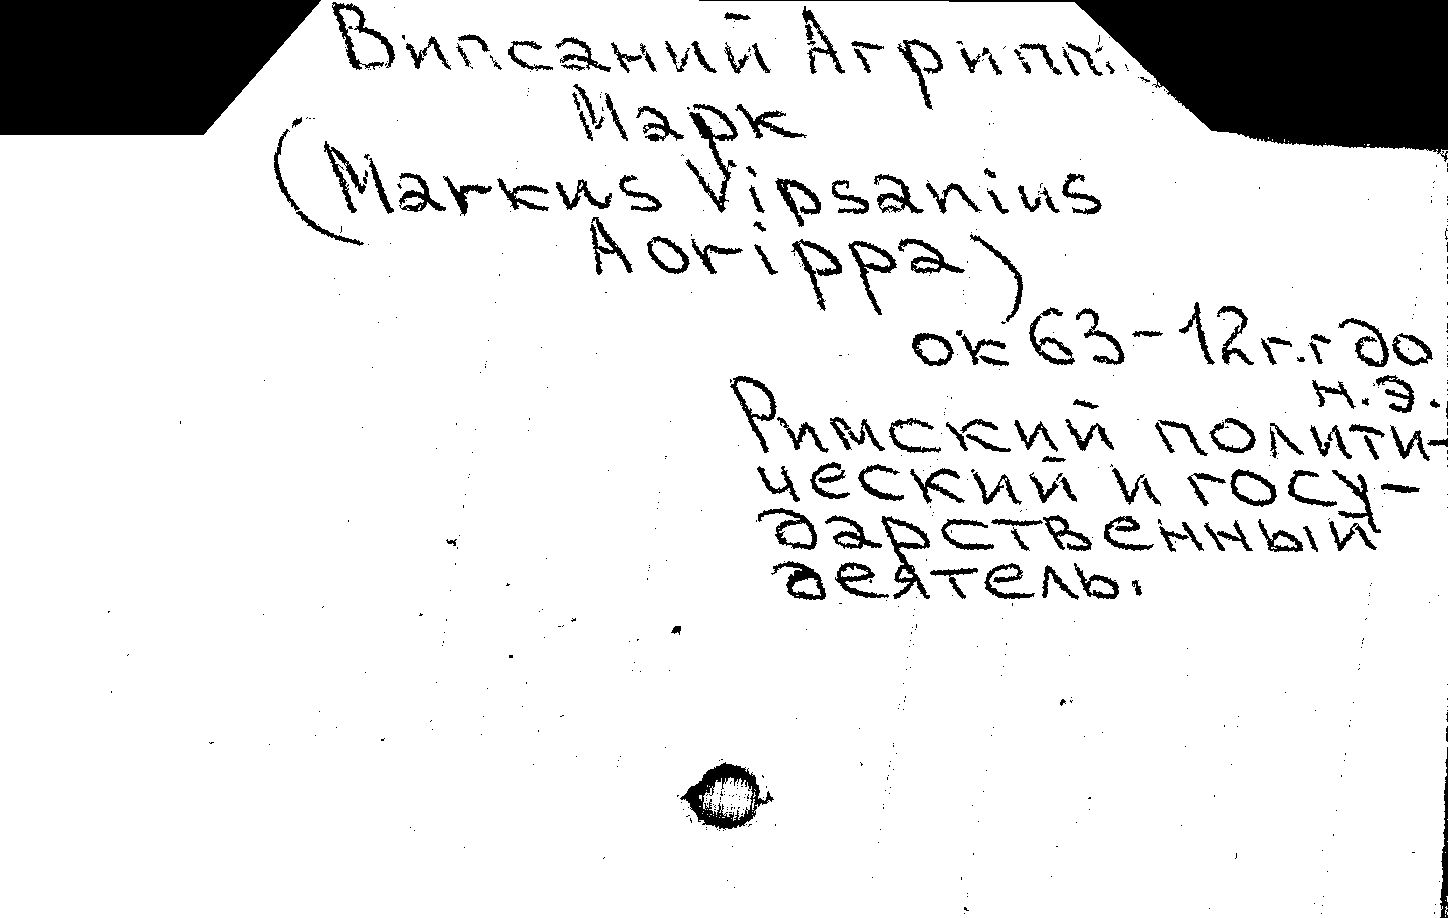 Випсаний Агриппа
Марк
(Markus Vipsanius
Aorippa)
ок 63-12 г.г до
н.э.
Римский полити-
ческий и госу-
дарственный
деятель.